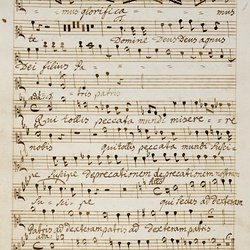 mus glorifica mus
te Domine Deus Deus agnus
Dei filius Pa
tris patris
Qui tollis peccata mundi misere re
nobis qui tollis peccata mundi susci
pe Suscipe deprecationem deprecationem nostram
Suscipe qui sedes ad dexteram
Patris ad dexteram patris ad dexteram patris